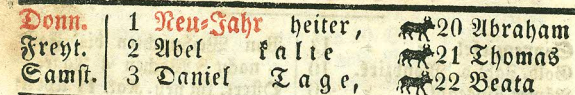 Donn. 1 Neu-Jahr heiter, 20 Abraham
Freyt. 2 Abel kalie 21 Thomas
Samst. 3 Daniel Tage, 22 Beata